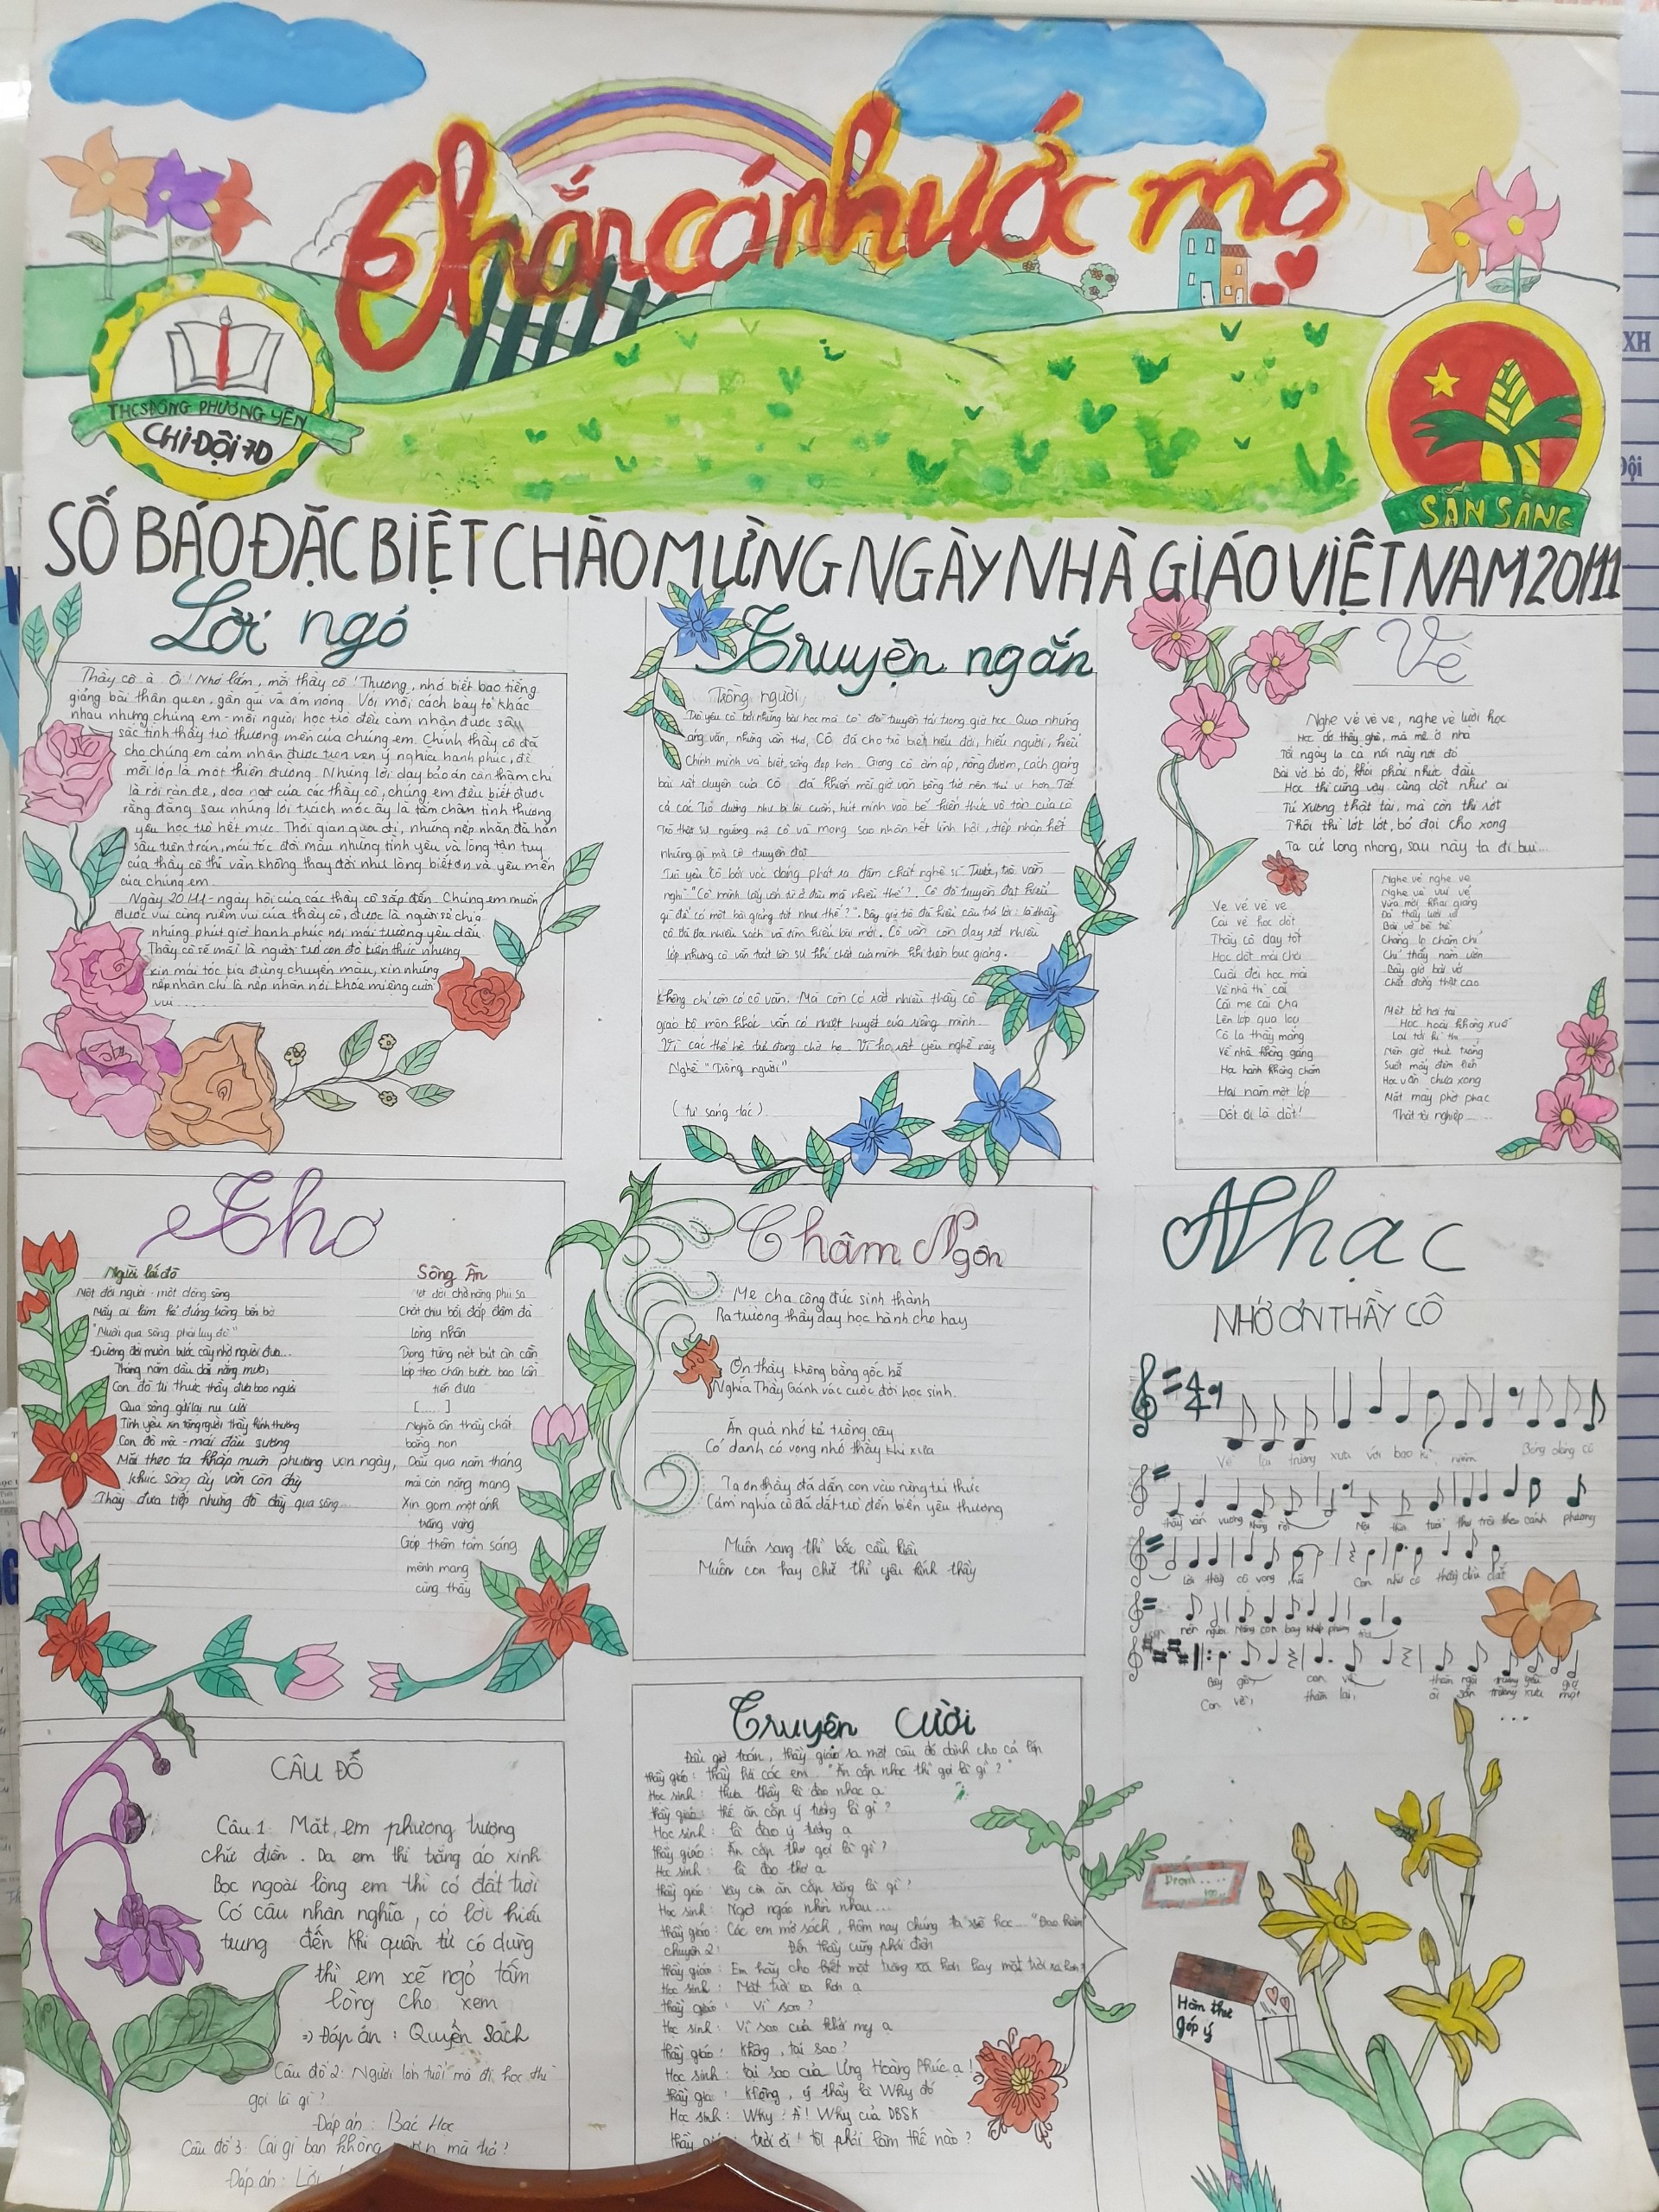 Chắp cánh ước mơ
THCS ĐÔNG PHƯƠNG YÊN
CHI ĐỘI 7D
SẴN SÀNG
SỐ BÁO ĐẶC BIỆT CHÀO MỪNG NGÀY NHÀ GIÁO VIỆT NAM 20/11
Lời ngỏ
Thầy cô à. Ôi! Nhớ lắm, mái thầy cô! Thương, nhớ biết bao tiếng
giảng bài thân quen, gần gũi và ấm nóng. Với mỗi cách bày tỏ khác
nhau nhưng chúng em - mỗi người học trò đều cảm nhận được sâu
sắc tình thầy trò thương mến của chúng em. Chính thầy cô đã
cho chúng em cảm nhận được trọn vẹn ý nghĩa hạnh phúc, để
mỗi lớp là một thiên đường. Những lời dạy bảo ân cần thậm chí
là rời rằn đe, dọa nạt của các thầy cô, chúng em đều biết được
rằng đằng sau những lời trách móc ấy là tấm chân tình thương
yêu học trò hết mực. Thời gian qua đi, những nếp nhăn đã hằn
sâu trên trán, mái tóc đổi màu nhưng tình yêu và lòng tận tụy
của thầy cô thì vẫn không thay đổi như lòng biết ơn và yêu mến
của chúng em.
Ngày 20/11 - ngày hội của các thầy cô sắp đến. Chúng em muốn
được vui cùng niềm vui của thầy cô, được là người sẻ chia
những phút giờ hạnh phúc nơi mái trường yêu dấu.
Thầy cô sẽ mãi là người trở con đò kiến thức nhưng
xin mái tóc kia đừng chuyển màu, xin những
nếp nhăn chỉ là nếp nhăn nơi khóe miệng cười
vui ......
Truyện ngắn
Trồng người
Trò yêu cô bởi những bài học mà cô đã truyền tải trong giờ học. Qua những
áng văn, những vần thơ, Cô đã cho trò biết hiểu đời, hiểu người, hiểu
chính mình và biết sống đẹp hơn. Giọng cô ấm áp, nồng đượm, cách giảng
bài rất duyên của cô đã khiến mỗi giờ văn bỗng trở nên thú vị hơn. Tất
cả các trò dường như bị lôi cuốn, hút mình vào bể kiến thức vô tận của cô
Trò thật sự ngưỡng mộ cô và mong sao nhân hết lĩnh hội, tiếp nhận hết
những gì mà cô truyền đạt
Trò yêu cô bởi vóc dáng phát ra đậm chất nghệ sĩ. Trước, trò vẫn
nghĩ "Cô mình lấy đâu mà nhiều thế?. Cô đã truyền đạt hiểu
gì để có một bài giảng tốt như thế?". Bây giờ trò đã hiểu câu trả lời: là thầy
cô đã đọc nhiều sách và tìm hiểu bài mới. Cô vẫn còn dạy rất nhiều
lớp nhưng cô vẫn toát lên sự khí chất của mình khi trên bục giảng.
Không chỉ còn có cô văn. Mà còn có rất nhiều thầy cô
giáo bộ môn khác vẫn có nhiệt huyết của riêng mình
Vì các thế hệ trẻ đang chờ họ. Vì họ rất yêu nghề này
Nghề "Trồng người"
(tự sáng tác)
Vè
Nghe vẻ vè ve, nghe vè lười học
Học do thầy ghê, mà mê ở nhà
Tối ngày la cà nơi này nơi đó
Bài vở bỏ đó, khỏi phải nhức đầu
Học thì cũng vậy cũng dốt như ai
Tú Xương thật tài, mà còn thi rớt
Thôi thì lớt lớt, bỏ đại cho xong
Ta cứ long nhong, sau này ta đi bụi...
Ve vẻ vè ve
Cái vè học dốt
Thầy cô dạy tốt
Học dốt mải chơi
Cuối đời học mãi
Về nhà thì cãi
Cãi mẹ cãi cha
Lên lớp qua loa
Cô la thầy mắng
Về nhà không gắng
Học hành không chăm
Hai năm một lớp
Dốt ơi là dốt!
Nghe vẻ nghe ve
Nghe vè vui vẻ
Vừa mới khai giảng
Đã thấy lười
Bài vở bê trễ
Chẳng lo chăm chỉ
Chỉ thấy nằm ườn
Bây giờ bài vở
Chất đống thật cao
Mệt bở hơi tai
Học hoài không xuể
Lại tới kì thi
Nên giờ thức trắng
Suốt mấy đêm liền
Học vẫn chưa xong
Mặt mày phờ phạc
Thật tội nghiệp.....
Thơ
Người lái đò
Một đời người - một dòng sông
Mấy ai làm kẻ đứng trông bến bờ
"Muốn qua sông phải lụy đò"
Đường đời muôn bước cậy nhờ người đưa...
Tháng năm dầu dãi nắng mưa,
Con đò tri thức thầy đưa bao người
Qua sông gửi lại nụ cười
Tình yêu xin tặng người thầy kính thương
Con đò mộc - mái đầu sương
Mãi theo ta khắp muôn phương vạn ngày,
Khúc sông ấy vẫn còn đây
Thầy đưa tiếp những đò đầy qua sông...
Sông Ân
đời chở nặng phù sa
Chắt chiu bồi đắp đậm đà
lòng nhân
Dọng từng nét bút ân cần
lớp theo chân bước bao lần
tiến đưa
[....]
Nghĩa ân thầy chất
bằng non
Dẫu qua năm tháng
mãi còn nặng mang
Xin gom một ánh
trăng vàng
Góp thêm tấm sáng
mênh mang
cùng thầy
Châm Ngôn
Mẹ cha công đức sinh thành
Ra trường thầy dạy học hành cho hay
Ơn thầy không bằng gốc bể
Nghĩa Thầy Gánh vác cuộc đời học sinh.
Ăn quả nhớ kẻ trồng cây
Có danh có vọng nhớ thầy khi xưa
Tạ ơn thầy đã dẫn con vào rừng tri thức
Cảm nghĩa cô đã dắt trò đến biển yêu thương
Muốn sang thì bắc cầu kiều
Muốn con hay chữ thì yêu kính thầy
Nhạc
NHỚ ƠN THẦY CÔ
Về lại trường xưa với bao kỉ niệm Bóng dáng cô
thầy vẫn vương nắng rơi Nơi tuổi thơ trôi theo cánh phượng
Lời thầy cô vọng mãi Con nhớ cô thầy dìu dắt
nên người Nâng con bay khắp phương trời
Bây giờ con về thăm ngôi trường yêu giờ
Con về thăm lại ôi sân trường xưa một
...
CÂU ĐỐ
Câu 1: Mặt em phương trượng
chữ điền. Da em thì trắng áo xinh
Bọc ngoài lòng em thì có đất trời
Có câu nhân nghĩa, có lời hiếu
trung đến khi quân tử có dùng
thì em xẽ ngỏ tấm
lòng cho xem
=> Đáp án: Quyển Sách
Câu đố 2: Người lớn tuổi mà đi học thì
gọi là gì?
Đáp án: Bác Học
Câu đố 3: Cái gì bạn không mà trả?
Đáp án: Lời
Truyện cười
Đầu giờ toán, thầy giáo ra một câu đố dành cho cả lớp
Thầy giáo: Thầy hỏi các em "Ăn cắp nhạc thì gọi là gì?"
Học sinh: thưa thầy là đạo nhạc ạ
Thầy giáo: thế ăn cắp ý tưởng là gì?
Học sinh: là đạo ý tưởng ạ
Thầy giáo: Ăn cắp thơ gọi là gì?
Học sinh: là đạo thơ ạ
Thầy giáo: Vậy còn ăn cắp răng là gì?
Học sinh: Ngơ ngác nhìn nhau...
Thầy giáo: Các em mở sách, hôm nay chúng ta sẽ học... "Đạo hàm"
chuyện 2: Đến thầy cũng phải điên
Thầy giáo: Em hãy cho biết mặt trăng xa hơn hay mặt trời xa hơn?
Học sinh: Mặt trời xa hơn ạ
Thầy giáo: Vì sao?
Học sinh: Vì sao của khởi my ạ
Thầy giáo: Không, tại sao?
Học sinh: tại sao của Ưng Hoàng Phúc ạ!
Thầy giáo: Không, ý thầy là Why đó
Học sinh: Why? À! Why của DBSK
Thầy trời ơi! tôi phải làm thế nào?
Hòm thư
góp ý